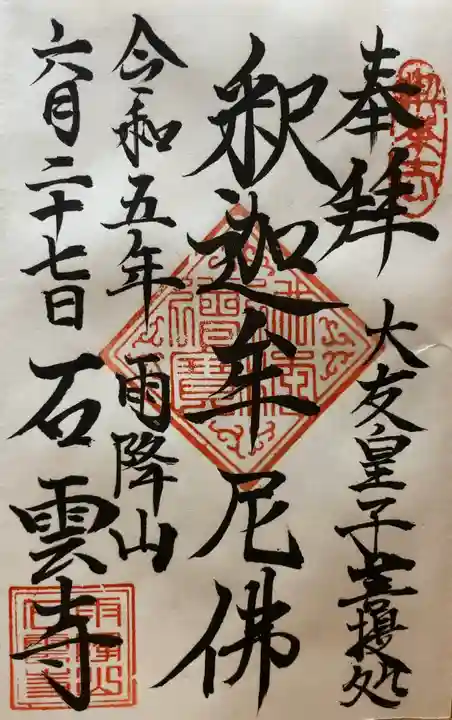 奉拝
大友皇子菩提処
釈迦牟尼佛
令和五年 雨降山
六月二十七日 石雲寺